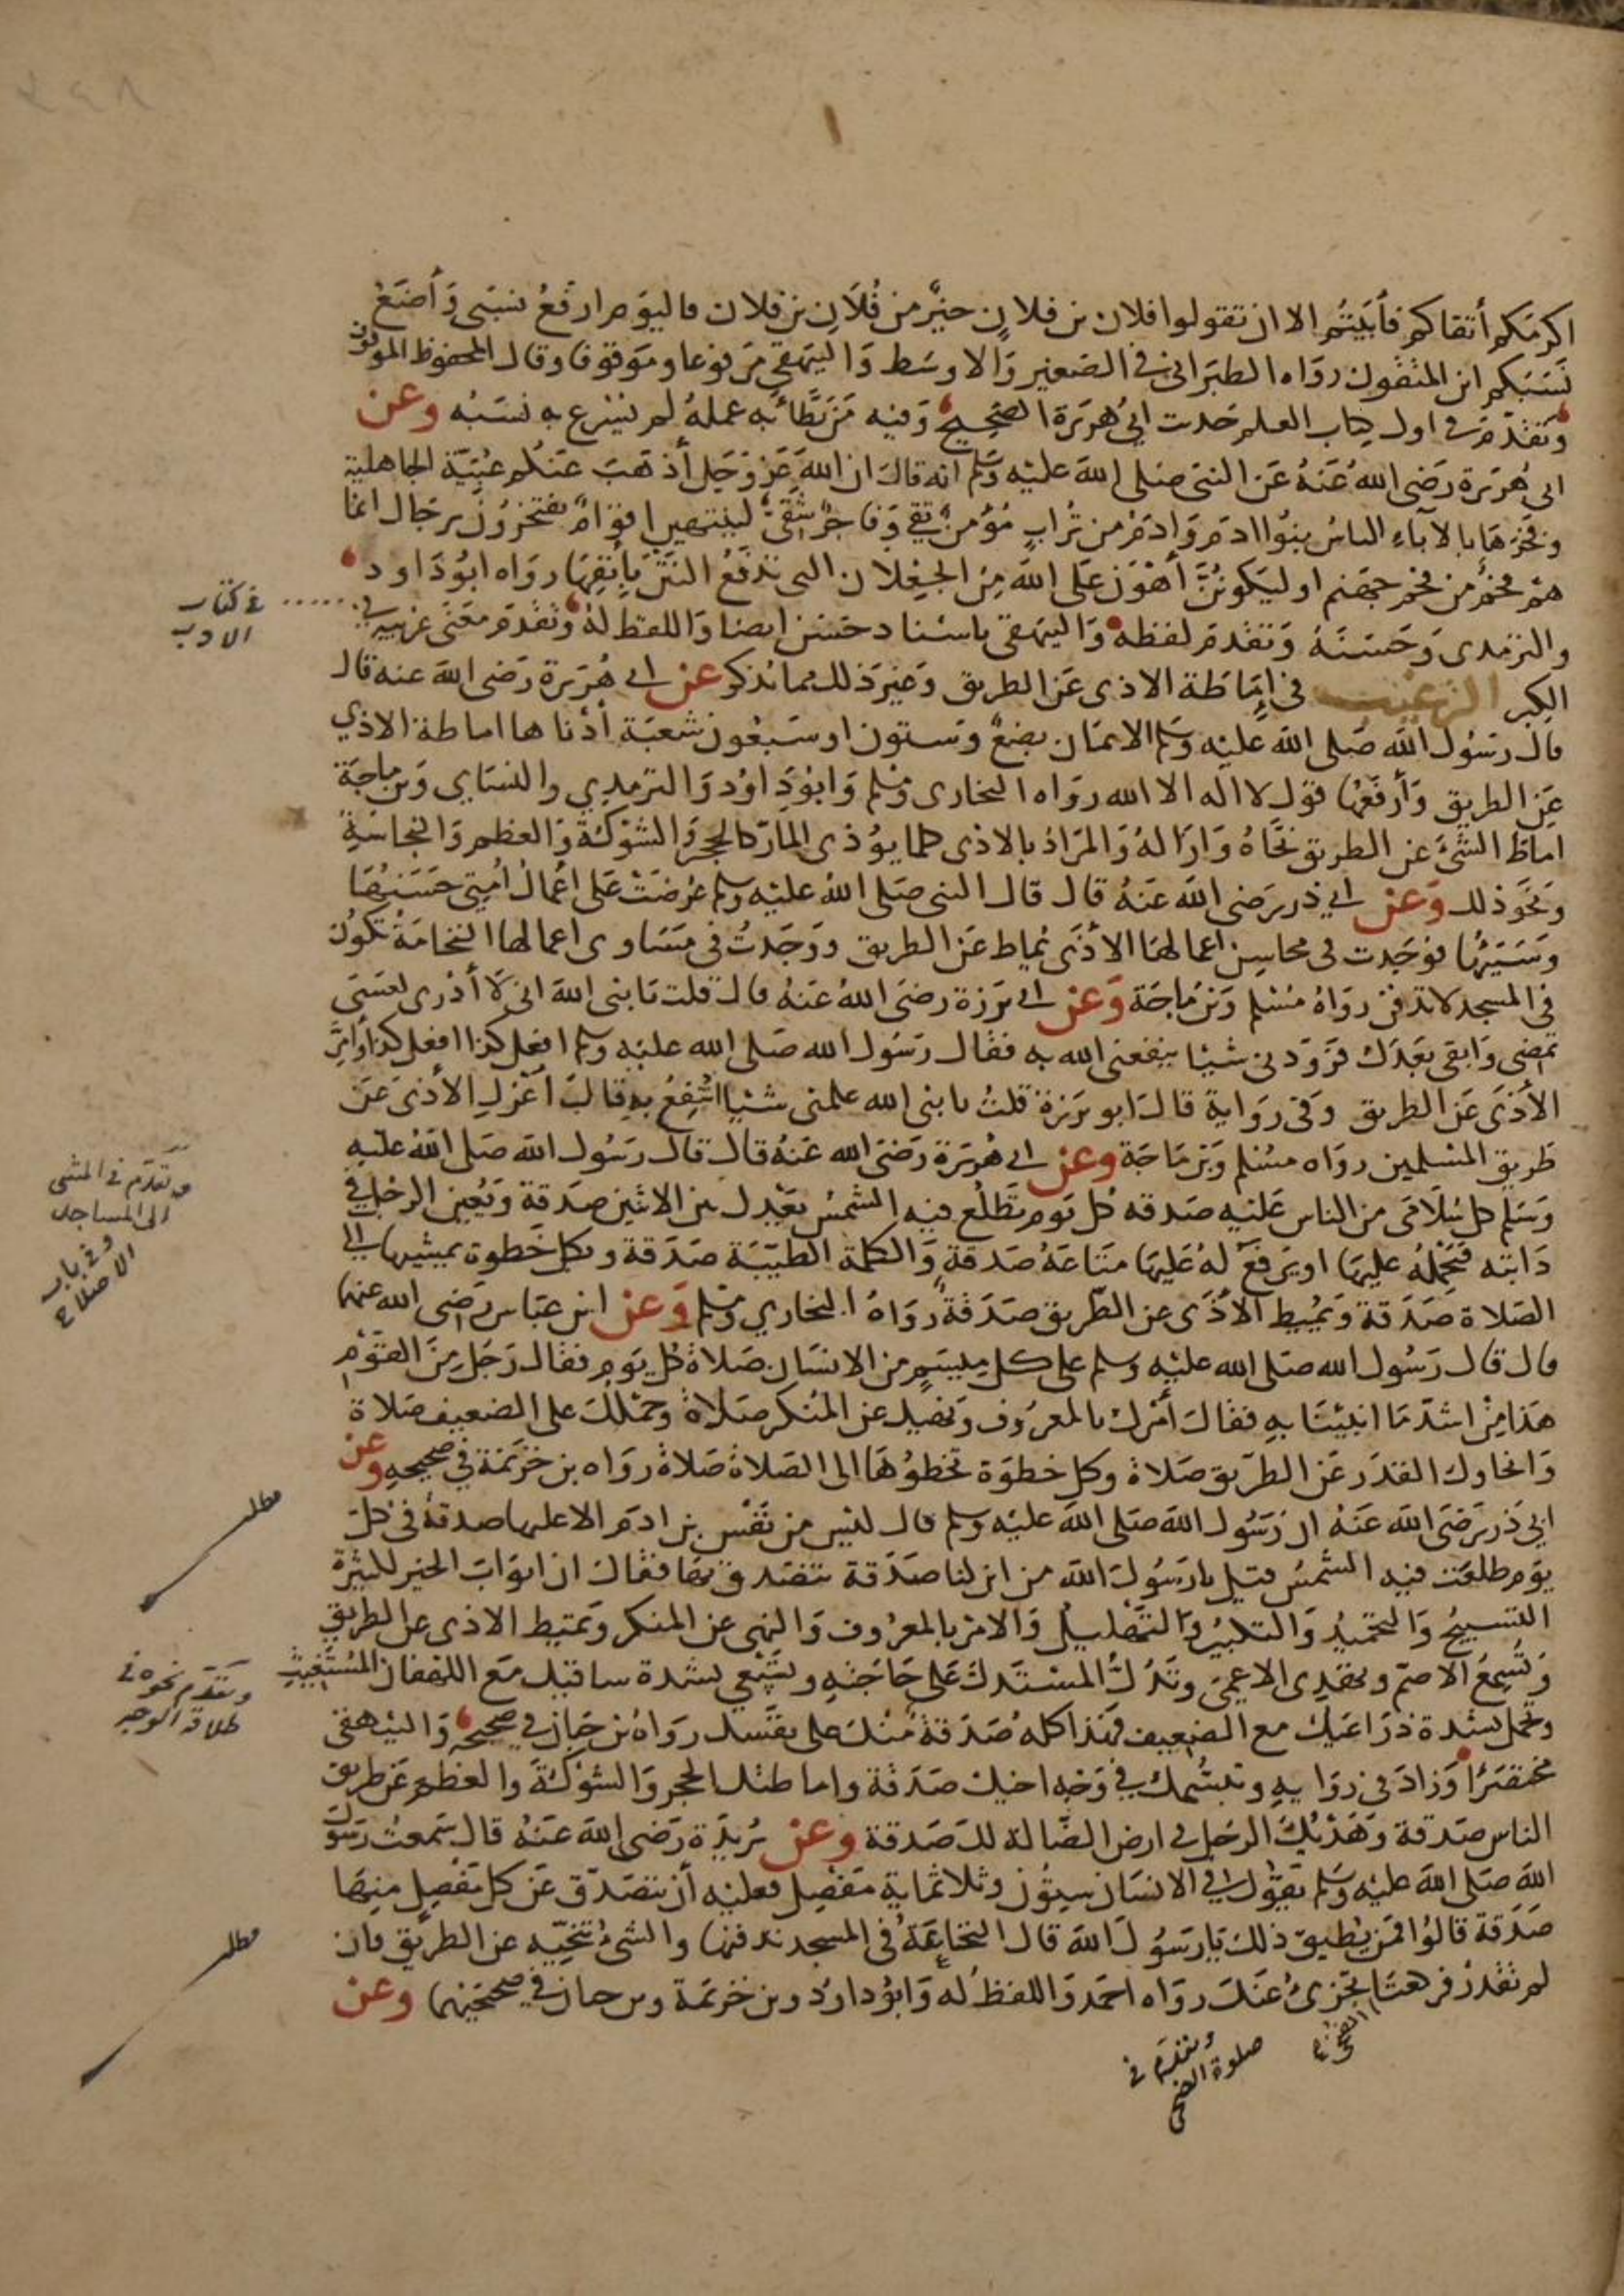 اكرمكم أتقاكم فأبيتم الا ان تقولوا فلان بن فلان خير من فلان بن فلان فاليوم ارفع نسبي وأضع
نسبكم اين المتقون رواه الطبراني في الصغير والاوسط والبيهقي مرفوعا وموقوفا وقال المحفوظ الموقوف
وتقدم في اول كتاب العلم حديث ابي هريرة الصحيح وفيه من بطأ به عمله لم يسرع به نسبه وعن
ابي هريرة رضي الله عنه عن النبي صلى الله عليه وسلم انه قال ان الله عز وجل أذهب عنكم عبية الجاهلية
وفخرها بالاباء الناس بنوا ادم وادم من تراب مؤمن تقي وفاجر شقي لينتهين اقوام يفتخرون برجال انما
هم فحم من فحم جهنم او ليكونن أهون على الله من الجعلان التي تدفع النتن بأنفها رواه ابو داود
والترمدي وحسنه وتقدم لفظه والبيهقي باسناد حسن ايضا واللفظ له وتقدم معنى غريبه في
في كتاب
الادب
الكبر الترغيب في إماطة الاذى عن الطريق وغير ذلك مما يذكر عن ابي هريرة رضي الله عنه قال
قال رسول الله صلى الله عليه وسلم الايمان بضع وستون او سبعون شعبة أدناها اماطة الاذي
عن الطريق وأرفعها قول لا اله الا الله رواه البخاري ومسلم وابو داود والترمدي والنساي وبن ماجة
اماط الشئ عن الطريق نحاه وازاله والمراد بالاذى كلما يؤذى المار كالحجر والشوكة والعظم والنجاسة
ونحو ذلك وعن ابي ذر رضي الله عنه قال قال النبي صلى الله عليه وسلم عرضت على اعمال أمتي حسنها
وسيئها فوجدت في محاسن اعمالها الأذى يماط عن الطريق ووجدت في مساوى اعمالها النخامة تكون
في المسجد لا تدفن رواه مسلم وبن ماجة وعن ابي برزة رضي الله عنه قال قلت يا نبي الله اني لا أدرى لعسى
تمضي وابقى بعدك فزودني شيئا ينفعني الله به فقال رسول الله صلى الله عليه وسلم افعل كذا افعل كذا وأمر
الأذى عن الطريق وفي رواية قال ابو برزة قلت يا نبي الله علمني شيئا انتفع به قال أعزل الأذى عن
طريق المسلمين رواه مسلم وبن ماجة وعن ابي هريرة رضي الله عنه قال قال رسول الله صلى الله عليه
وتقدم في المشى
الى المساجد
وفي باب
الاصلاح
وسلم كل سلامى من الناس عليه صدقه كل يوم تطلع فيه الشمس يعدل بين الاثنين صدقة ويعين الرجل في
دابته فتحمله عليها او يرفع له عليها متاعه صدقة والكلمة الطيبة صدقة وبكل خطوة يمشيها الى
الصلاة صدقة ويميط الأذى عن الطريق صدقة رواه البخاري ومسلم وعن ابن عباس رضي الله عنهما
قال قال رسول الله صلى الله عليه وسلم على كل ميسم من الانسان صلاة كل يوم فقال رجل من القوم
هذا من اشد ما انبيتنا به فقال أمرك بالمعروف ونهيك عن المنكر صلاة وحملك على الضعيف صلاة
وانحاوك القذر عن الطريق صلاة وكل خطوة تخطوها الى الصلاة صلاة رواه بن خزيمة في صحيحه وعن
مطلب
ابي ذر رضي الله عنه ان رسول الله صلى الله عليه وسلم قال ليس من نفس بن ادم الا عليها صدقة في كل
يوم طلعت فيه الشمس قيل يا رسول الله من اين لنا صدقة نتصدق بها فقال ان ابواب الخير لكثيرة
التسبيح والتحميد والتكبير والتهليل والامر بالمعروف والنهي عن المنكر وتميط الاذى عن الطريق
وتسمع الاصم وتهدي الاعمى وتدل المستدل على حاجته وتسعي بشدة ساقيك مع اللهفان المستغيث
وتقدم نحوه في
طلاقة الوجه
وتحمل بشدة ذراعيك مع الضعيف فهذا كله صدقة منك على نفسك رواه بن حبان في صحيحه والبيهقي
مختصرا وزاد في رواية وتبسمك في وجه اخيك صدقة واماطتك الحجر والشوكة والعظم عن طريق
الناس صدقة وهديك الرجل في ارض الضالة لك صدقة وعن بريدة رضي الله عنه قال سمعت رسول
الله صلى الله عليه وسلم يقول في الانسان ستون وثلاثماية مفصل فعليه أن يتصدق عن كل مفصل منها
صدقة قالوا فمن يطيق ذلك يا رسول الله قال النخاعة في المسجد تدفنها والشئ تنحيه عن الطريق فان
مطلب
لم تقدر فركعتا الضحى تجزئ عنك رواه احمد واللفظ له وابو داود وبن خزيمة وبن حبان في صحيحيهما وعن
وتقدم في
صلوة الضحى